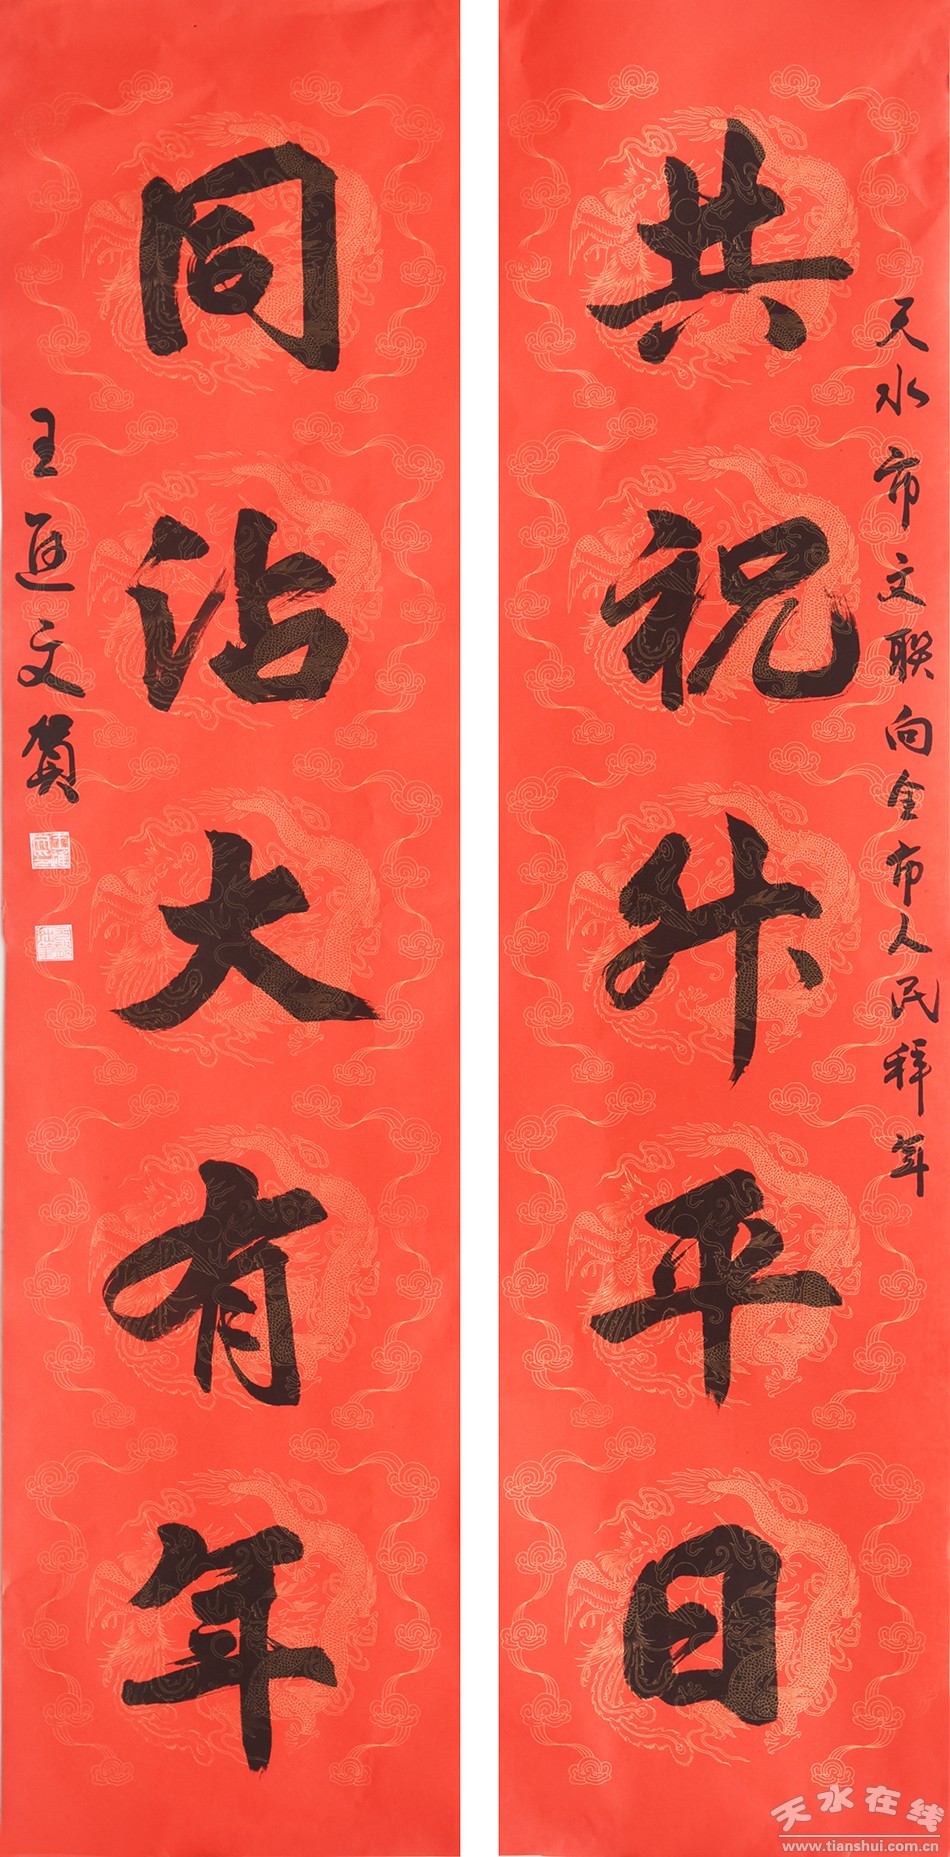 共祝升平日
天水市文联向全市人民拜年
同沾大有年
王进文贺
天水在线
www.tianshui.com.cn